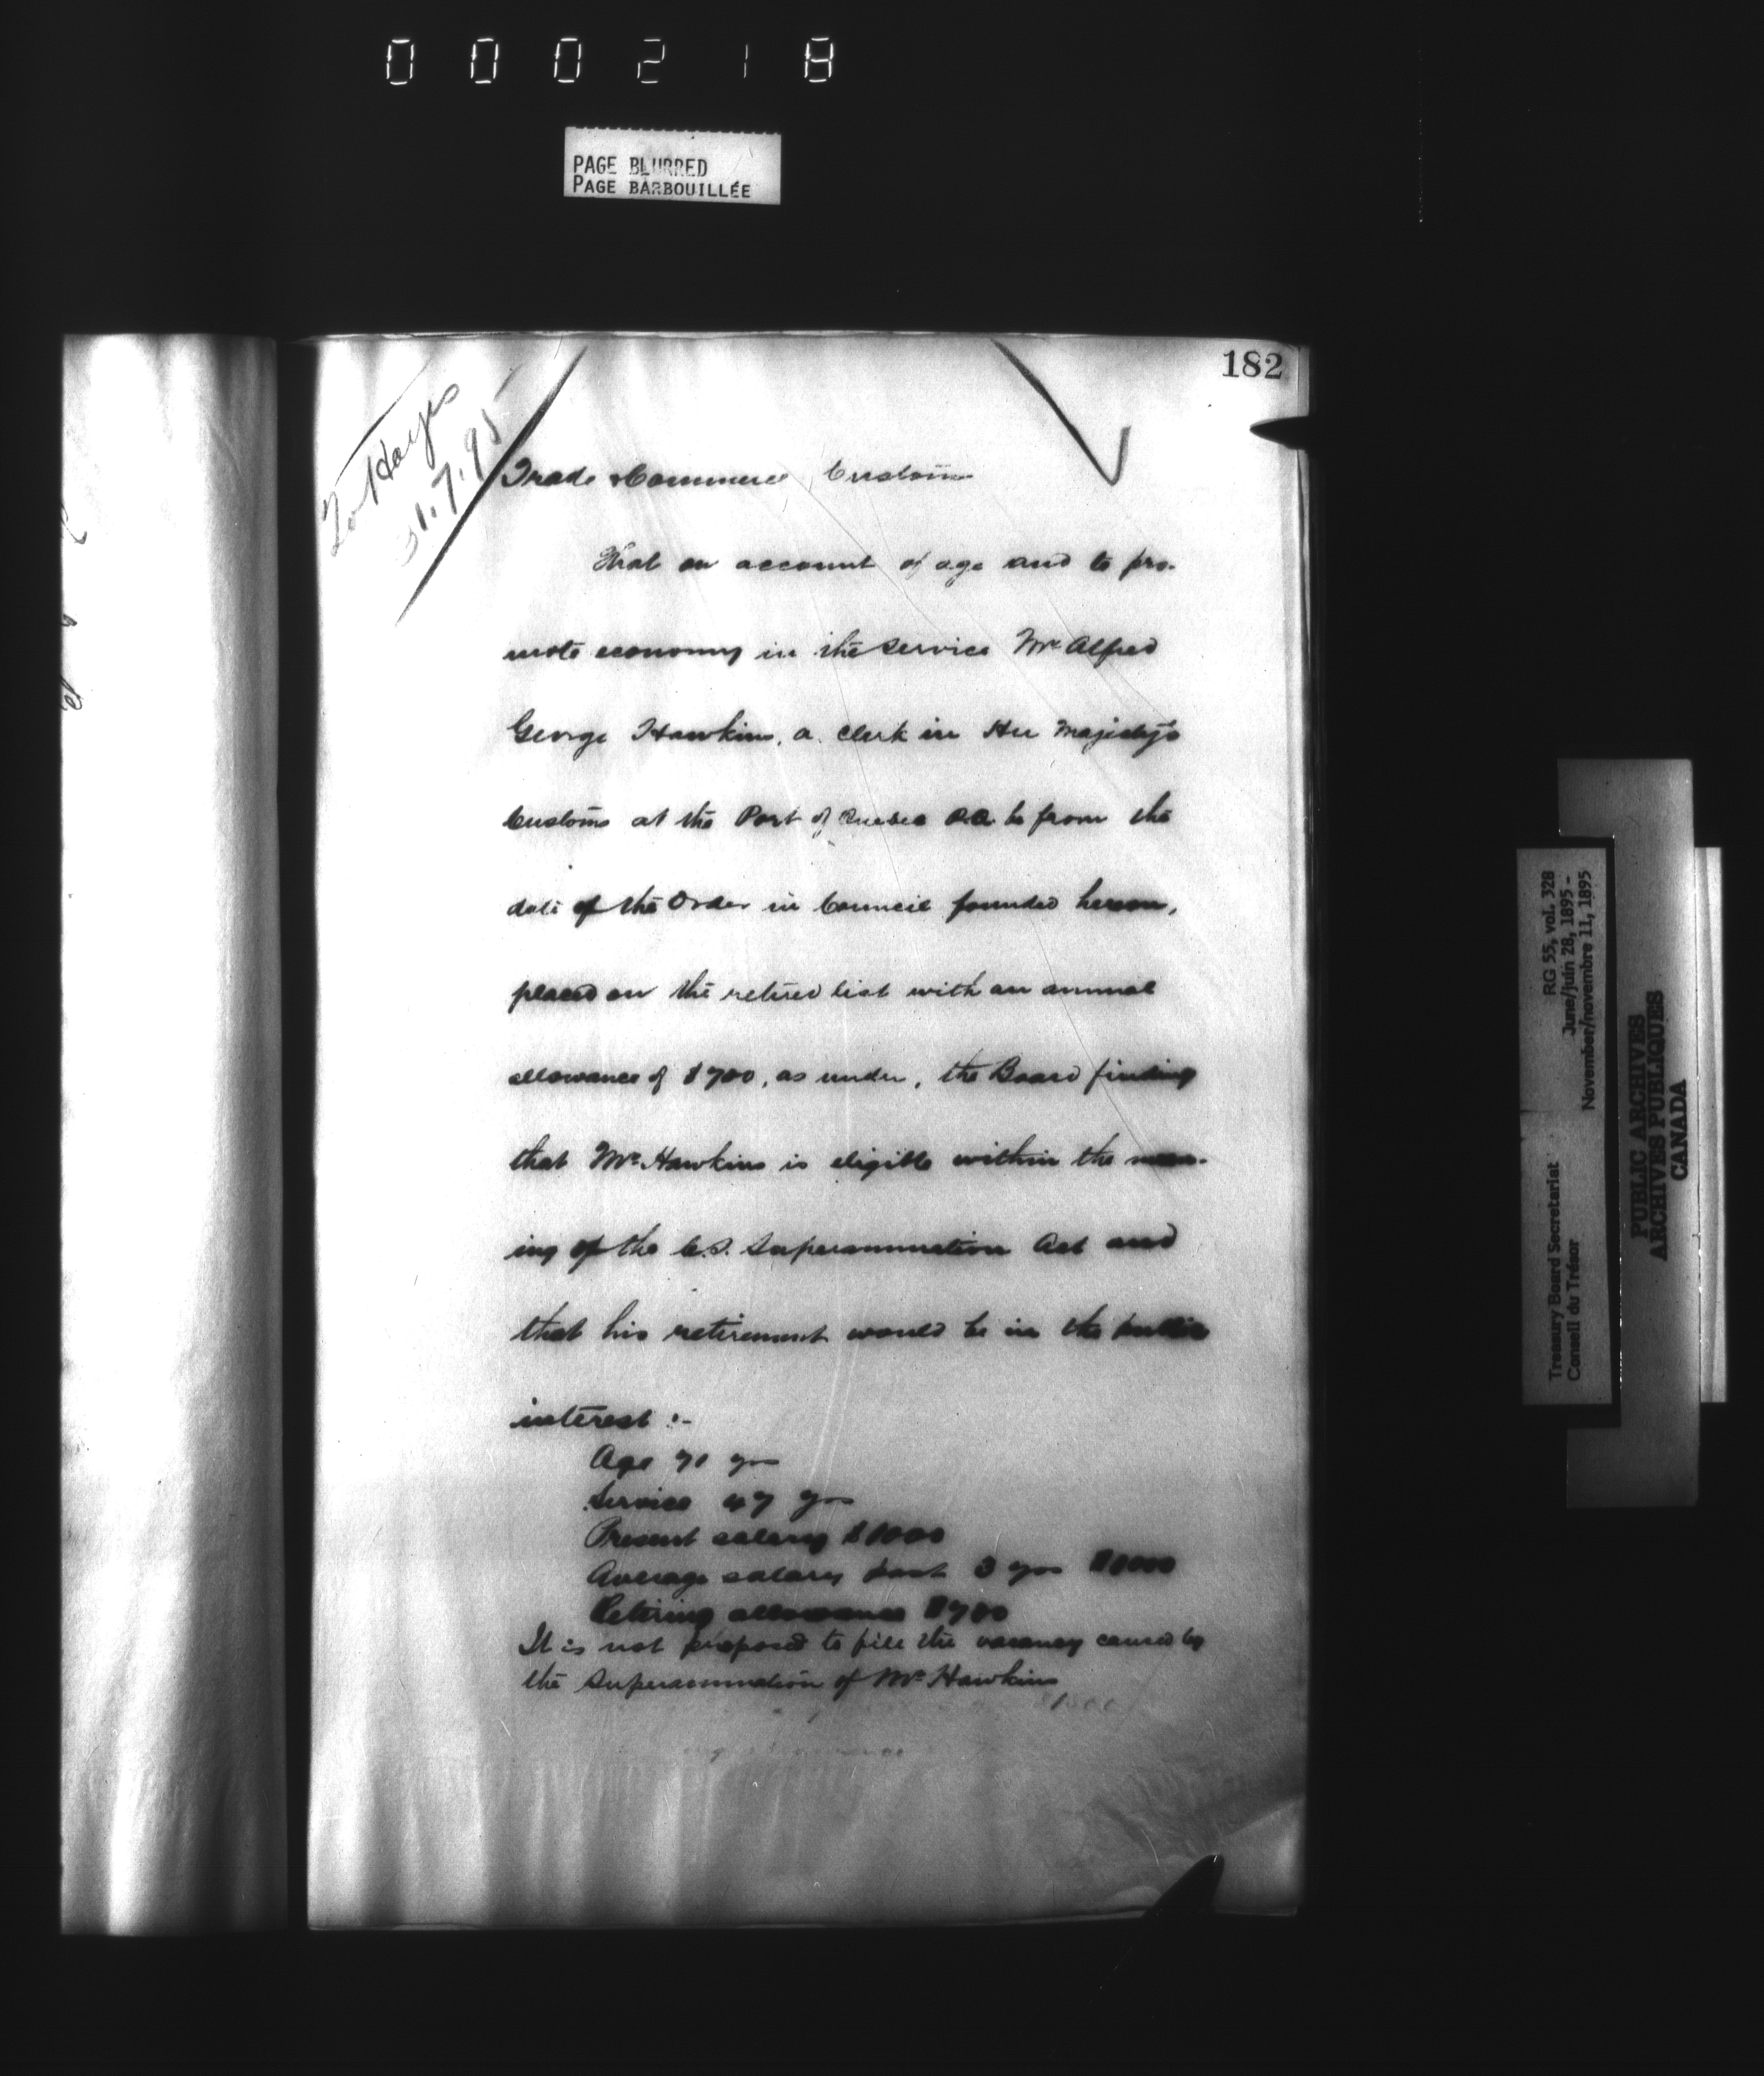 000218
PAGE BLURRED
PAGE BARBOUILLÉE
182
To Hayes
31.7.95
Trade & Commerce, Customs
That on account of age and to pro-
mote economy in the service Mr Alfred
George Hawkins, a clerk in Her Majesty's
Customs at the Port of Quebec P.Q. be from the
date of the Order in Council founded hereon,
placed on the retired list with an annual
allowance of $700, as under, the Board finding
that Mr Hawkins is eligible within the mean-
ing of the C.S. Superannuation Act and
that his retirement would be in the public
interest :-
Age 71 yrs
Service 47 yrs
Present salary $1000
Average salary last 3 yrs $1000
Retiring allowance $700
It is not proposed to fill the vacancy caused by
the Superannuation of Mr Hawkins
RG 55, vol. 328
June/juin 28, 1895 -
November/novembre 11, 1895
Treasury Board Secretariat
Conseil du Trésor
PUBLIC ARCHIVES
ARCHIVES PUBLIQUES
CANADA